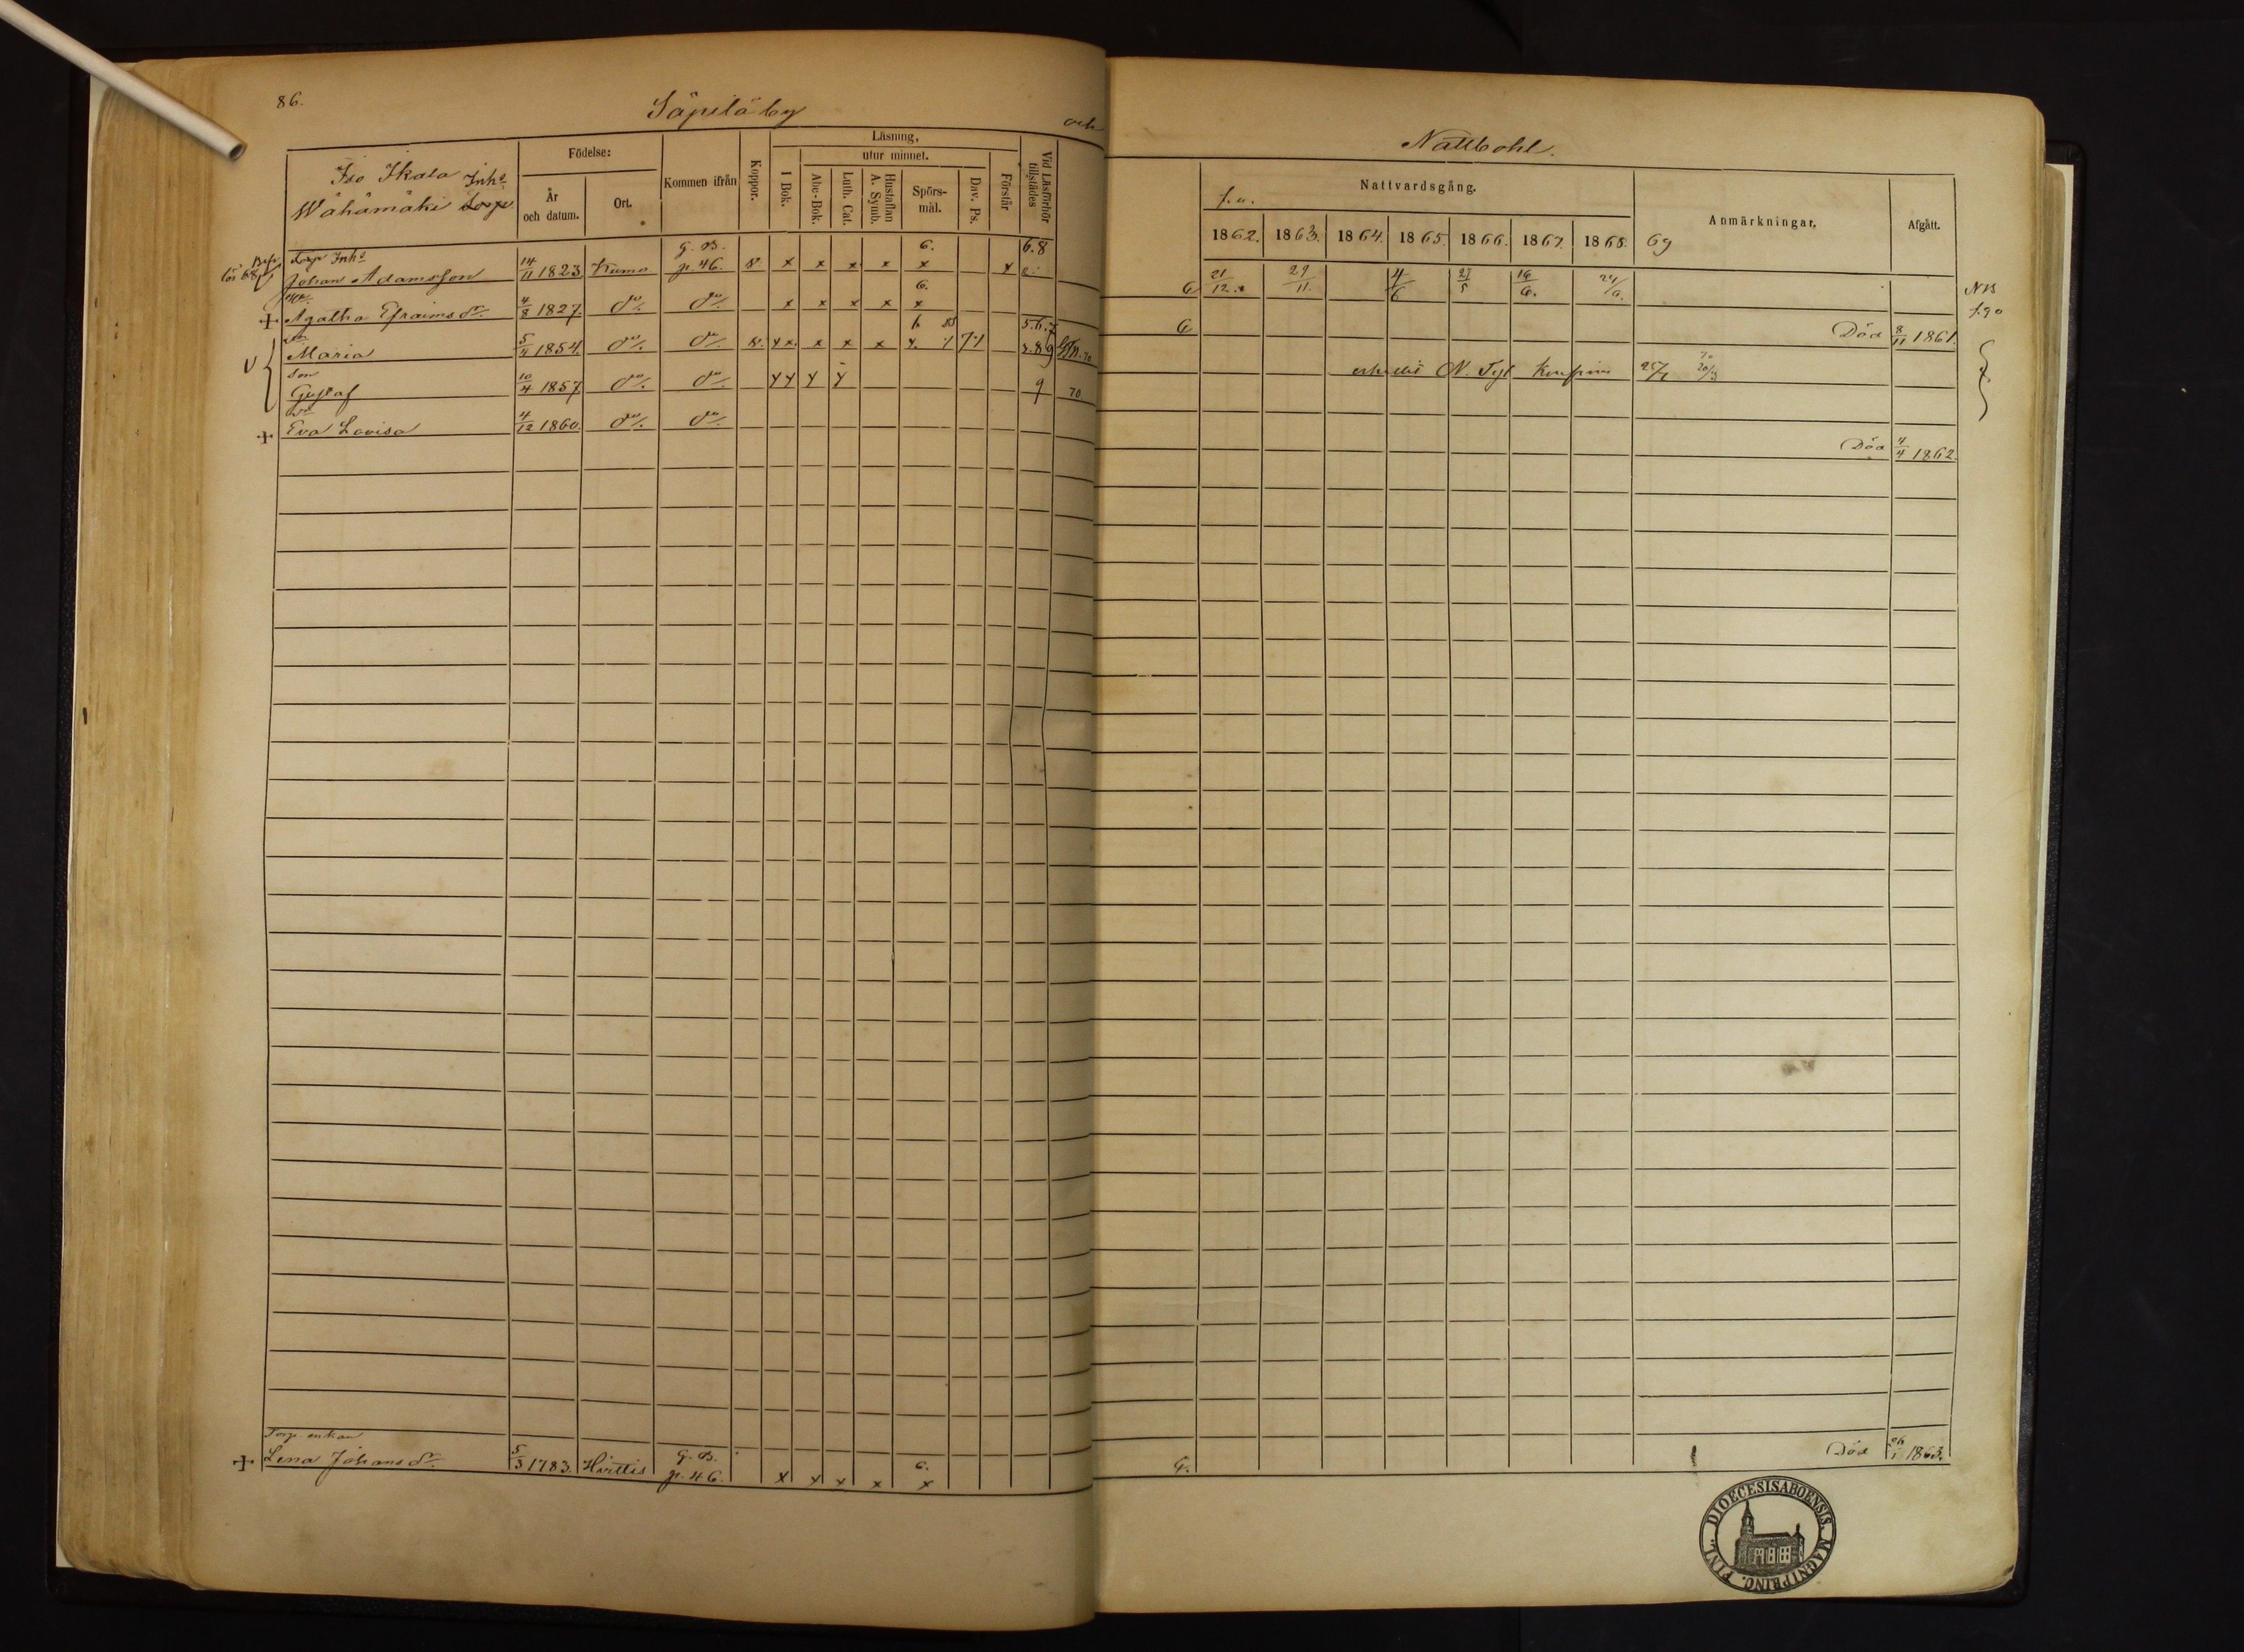 86.
Säpilä by
och
Nattbohl.
Iso Ikala Inhs
Wähämäki Torp
Födelse:
År
och datum.
Ort.
Kommen ifrån
Koppor.
Läsning,
I Bok.
utur minnet.
Abc-Bok.
Luth. Cat.
Hustaflan
A. Symb.
Spörs-
mål.
Dav. Ps.
Förstår
Vid Läsförhör
tillstädes
f. u.
Nattvardsgång.
1862. 1863. 1864. 1865. 1866. 1867. 1868. 69
Anmärkningar.
Afgått.
Torp Inhs
Johan Adamsson 14/11 1823 Kumo G. B. p. 46. v. x x x x 6. x x 6.8
6 21/12 29/11. 4/6 27/5 16/6. 24/6. NB f. 90
Agatha Efraims dr. 4/8 1827. do/. do/. x x x x 6. x
6 Död 8/11 1861.
Maria 5/4 1854. do/. do/. v. x x x 5.6.7 8.9
N. Tyl 25/7
Son
Gustaf 10/4 1857. do/. do/. 9 70
Eva Lovisa 4/12 1860. do/. do/.
Död 4/4 1862.
Torp. enkan
Lena Johans dr. 5/3 1783. Hvittis G. B. p. 46. x x x x 6. x
6. Död 26/1 1863.
DIOECESIS ABOENSIS. MAGNI PRINC. FINL.